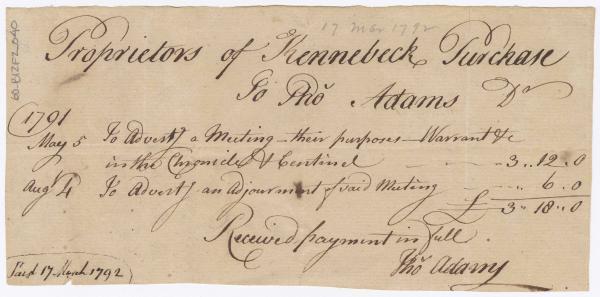 17 Mar 1792
60-B12F2.040
Proprietors of Kennebeck Purchase
To Thos Adams Dr
1791
May 5 To Advertg a Meeting - their purposes - Warrant &c
in the Chronicle & Centinel 3 .. 12 .. 0
Augt 4 To Advertg an adjournment of said Meeting 6 .. 0
£ 3 .. 18 .. 0
Received payment in full
Thos Adams
Paid 17 March 1792